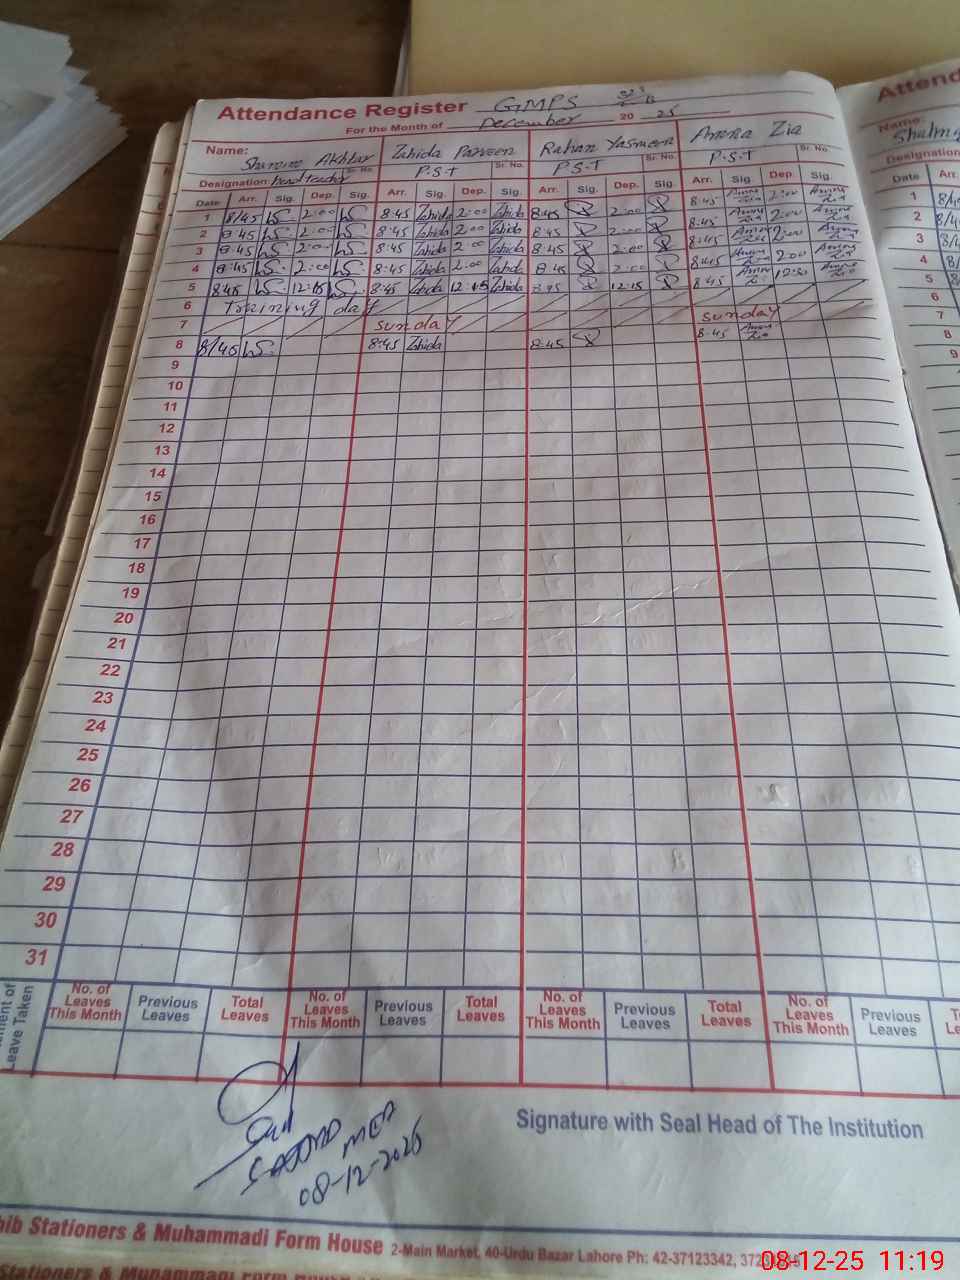 Attendance Register GMPS
For the Month of December 20 25
Name: Akhtar Zahida Parveen Rahan Yasmeen Amna Zia
Designation: head teacher Sr. No. P.S.T Sr. No. P.S.T Sr. No. P.S.T Sr. No.
Date Arr. Sig. Dep. Sig. Arr. Sig. Dep. Sig. Arr. Sig. Dep. Sig. Arr. Sig. Dep. Sig.
1 8/45 2:00 8:45 Zahida 2:00 Zahida 8:45 2:00 8:45 Amna Zia 2:00 Amna Zia
2 8:45 2:00 8:45 Zahida 2:00 Zahida 8:45 2:00 8:45 Amna Zia 2:00 Amna Zia
3 8:45 2:00 8:45 Zahida 2:00 Zahida 8:45 2:00 8:45 Amna Zia 2:00 Amna Zia
4 8:45 2:00 8:45 Zahida 2:00 Zahida 8:45 2:00 8:45 Amna Zia 2:00 Amna Zia
5 8:45 12:15 8:45 Zahida 12:15 Zahida 8:45 12:15 8:45 Amna Zia Amna Zia
6 Training day
7 Sunday Sunday
8 8/45 8:45 Zahida 8:45 8:45 Amna Zia
9
10
11
12
13
14
15
16
17
18
19
20
21
22
23
24
25
26
27
28
29
30
31
Leave Taken
No. of Leaves This Month Previous Leaves Total Leaves No. of Leaves This Month Previous Leaves Total Leaves No. of Leaves This Month Previous Leaves Total Leaves No. of Leaves This Month Previous Leaves
Signature with Seal Head of The Institution
MEA
08-12-2025
Stationers & Muhammadi Form House 2-Main Market, 40-Urdu Bazar Lahore Ph: 42-37123342,
Stationers & Muhammadi Form
Name:
Designation
Date Arr.
1
2
3
4
5
6
7
8
9
08-12-25 11:19